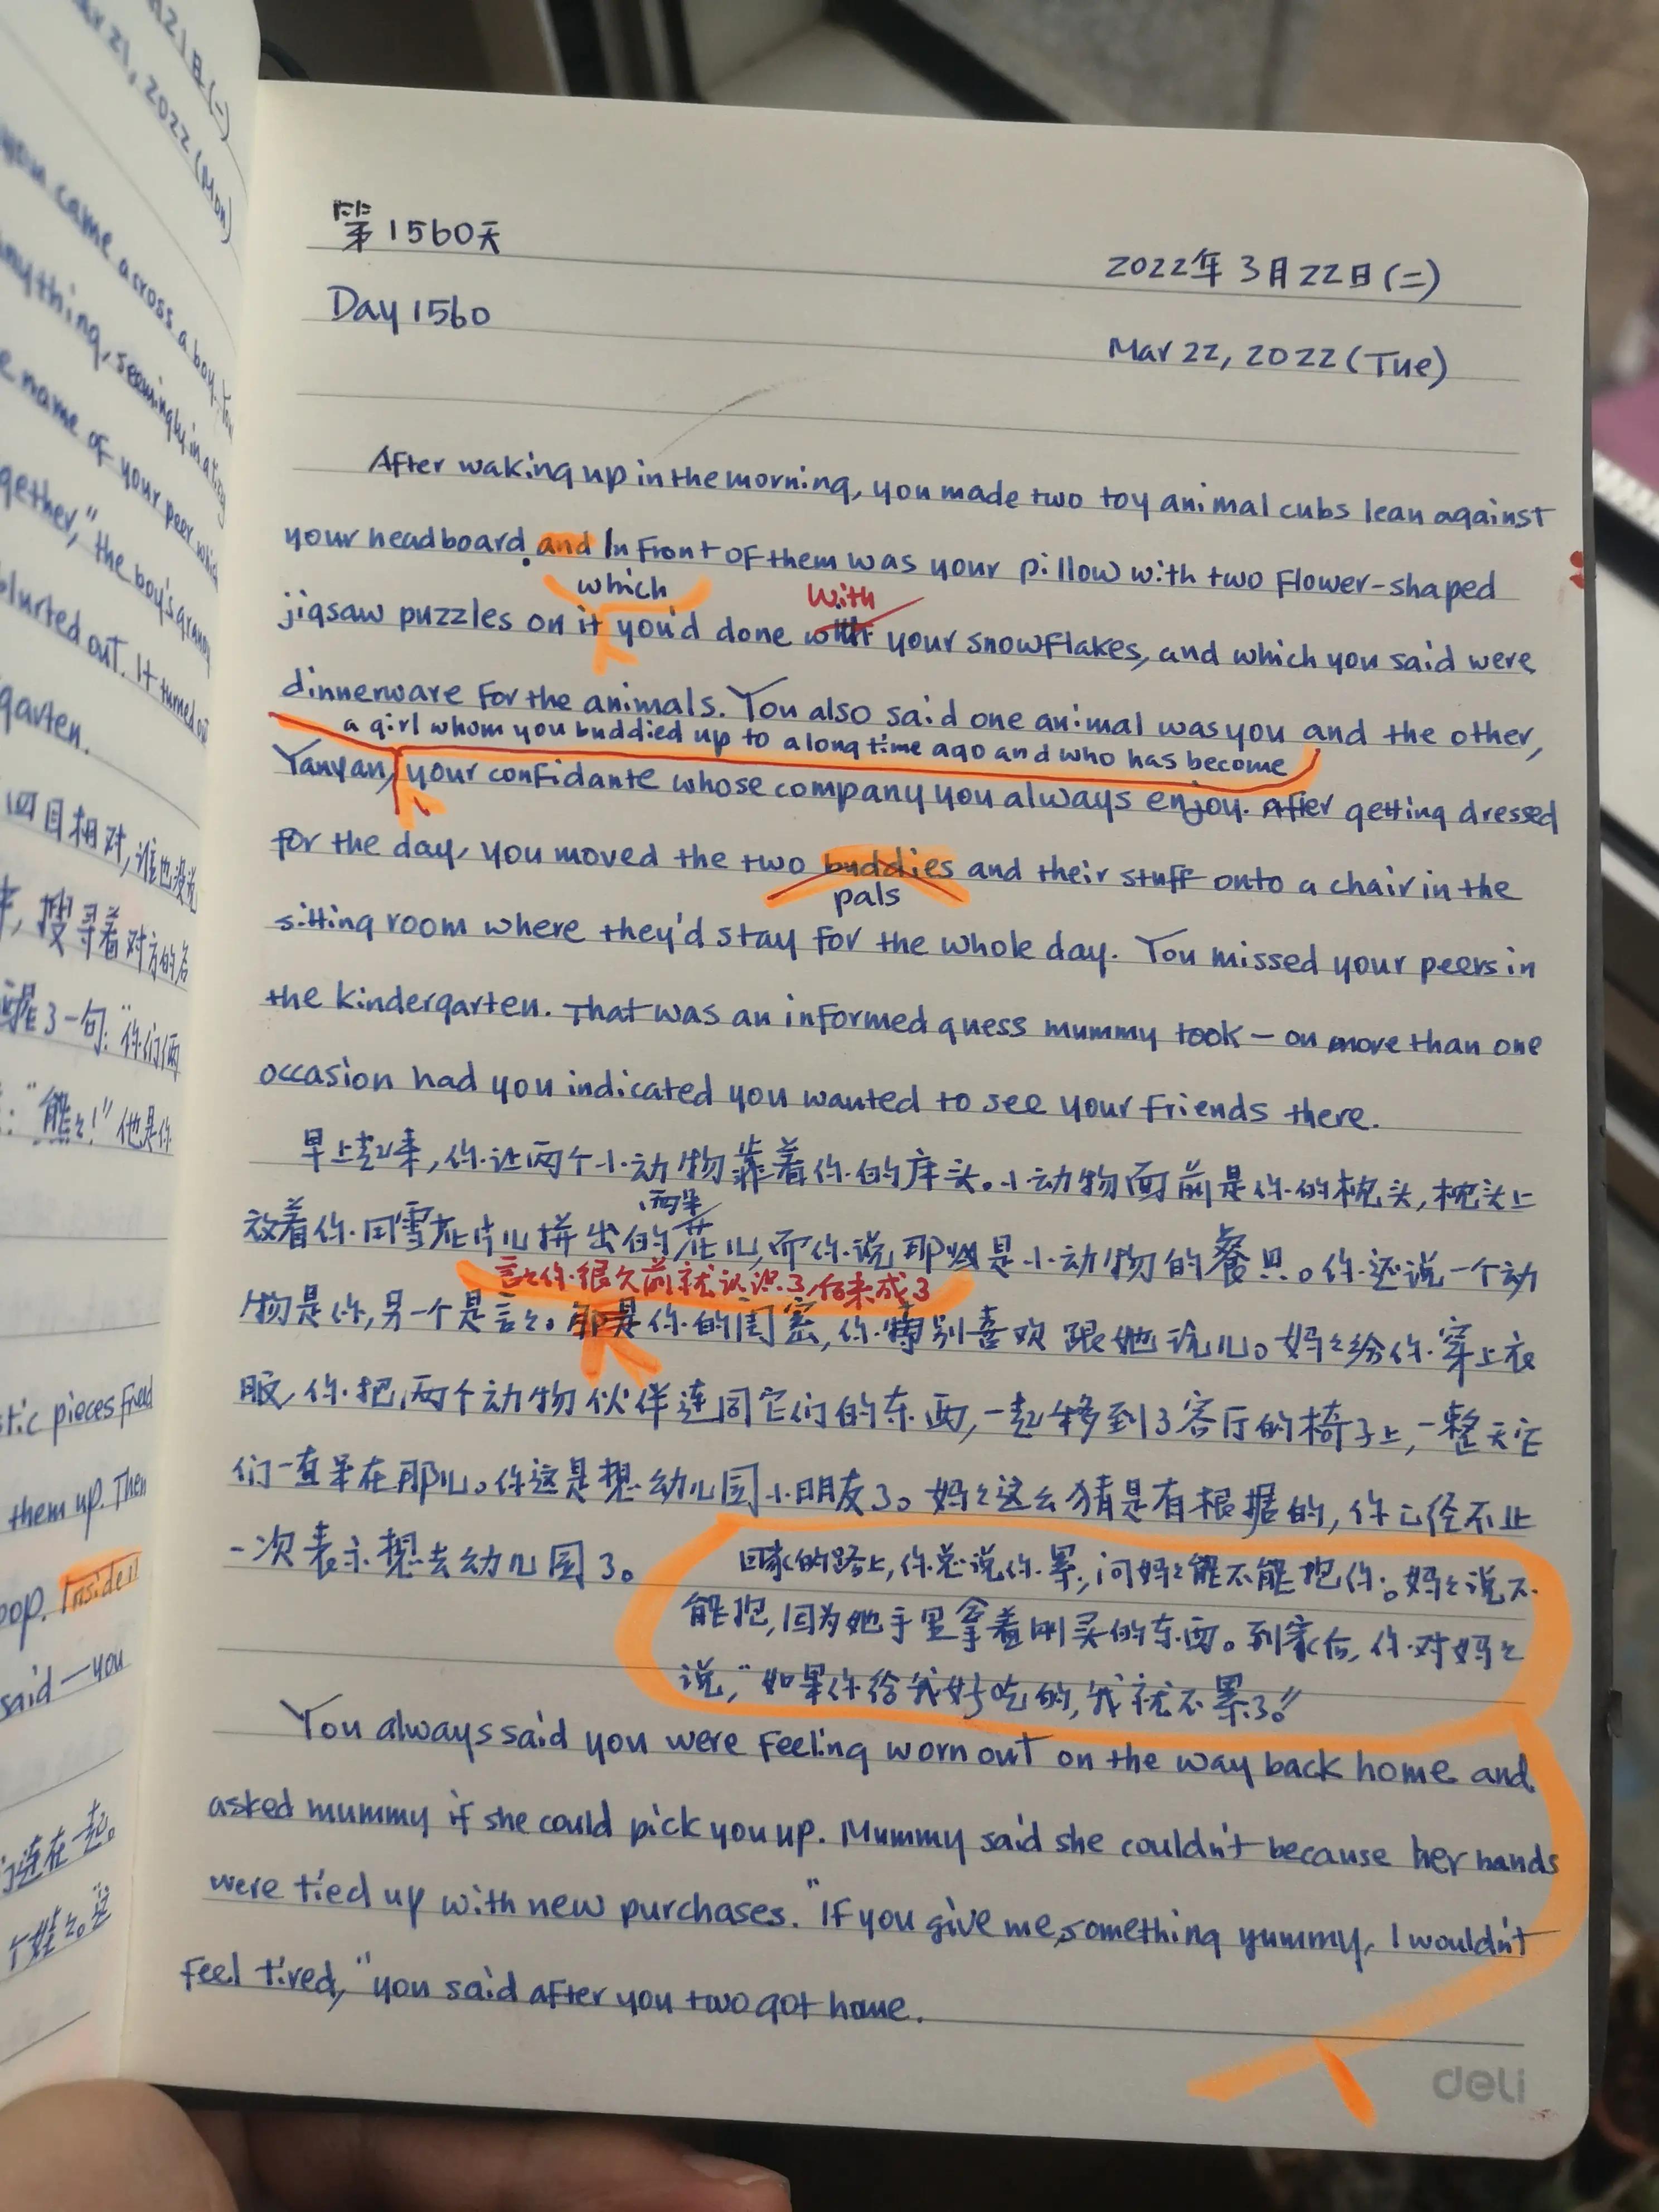 第1560天
2022年3月22日(二)
Day 1560
Mar 22, 2022 (Tue)
After waking up in the morning, you made two toy animal cubs lean against
your headboard. and In front of them was your pillow with two flower-shaped
which
with
jigsaw puzzles on it you'd done your snowflakes, and which you said were
dinnerware for the animals. You also said one animal was you and the other,
a girl whom you buddied up to a long time ago and who has become
Yanyan, your confidante whose company you always enjoy. After getting dressed
for the day, you moved the two buddies and their stuff onto a chair in the
pals
sitting room where they'd stay for the whole day. You missed your peers in
the kindergarten. That was an informed guess mummy took — on more than one
occasion had you indicated you wanted to see your friends there.
早上起来,你让两个小动物靠着你的床头。小动物面前是你的枕头,枕头上
两朵
放着你用雪花片儿拼出的花儿,而你说那是小动物的餐具。你还说一个动
言言你很久前就认识了,后来成了
物是你,另一个是言言。那是你的闺密,你特别喜欢跟她玩儿。妈妈给你穿上衣
服,你把两个动物伙伴连同它们的东西,一起移到了客厅的椅子上,一整天它
们一直呆在那儿。你这是想幼儿园小朋友了。妈妈这么猜是有根据的,你已经不止
一次表示想去幼儿园了。
回家的路上,你总说你累,问妈妈能不能抱你。妈妈说不
能抱,因为她手里拿着刚买的东西。到家后,你对妈妈
说,"如果你给我好吃的,我就不累了。"
You always said you were feeling worn out on the way back home and
asked mummy if she could pick you up. Mummy said she couldn't because her hands
were tied up with new purchases. "If you give me something yummy, I wouldn't
feel tired," you said after you two got home.
deli